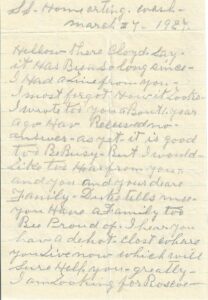 march 27 - 1927.
Hellow there Cloyd Say -
it Has Been So long since -
I Had a line from you -
I most forgot How it Looks -
I wrote to you about 1. year
ago Hav Received no -
answer - as yet - it is good
too Be Busy - But I would -
Like too Hear from you -
and you and your deare
Family - tells me -
you Have a Family too
Bee Proud of - I hear you
hav a depot - Close where
you Live now which will
Sure Help you - greatly -
I am looking for Roscoe -